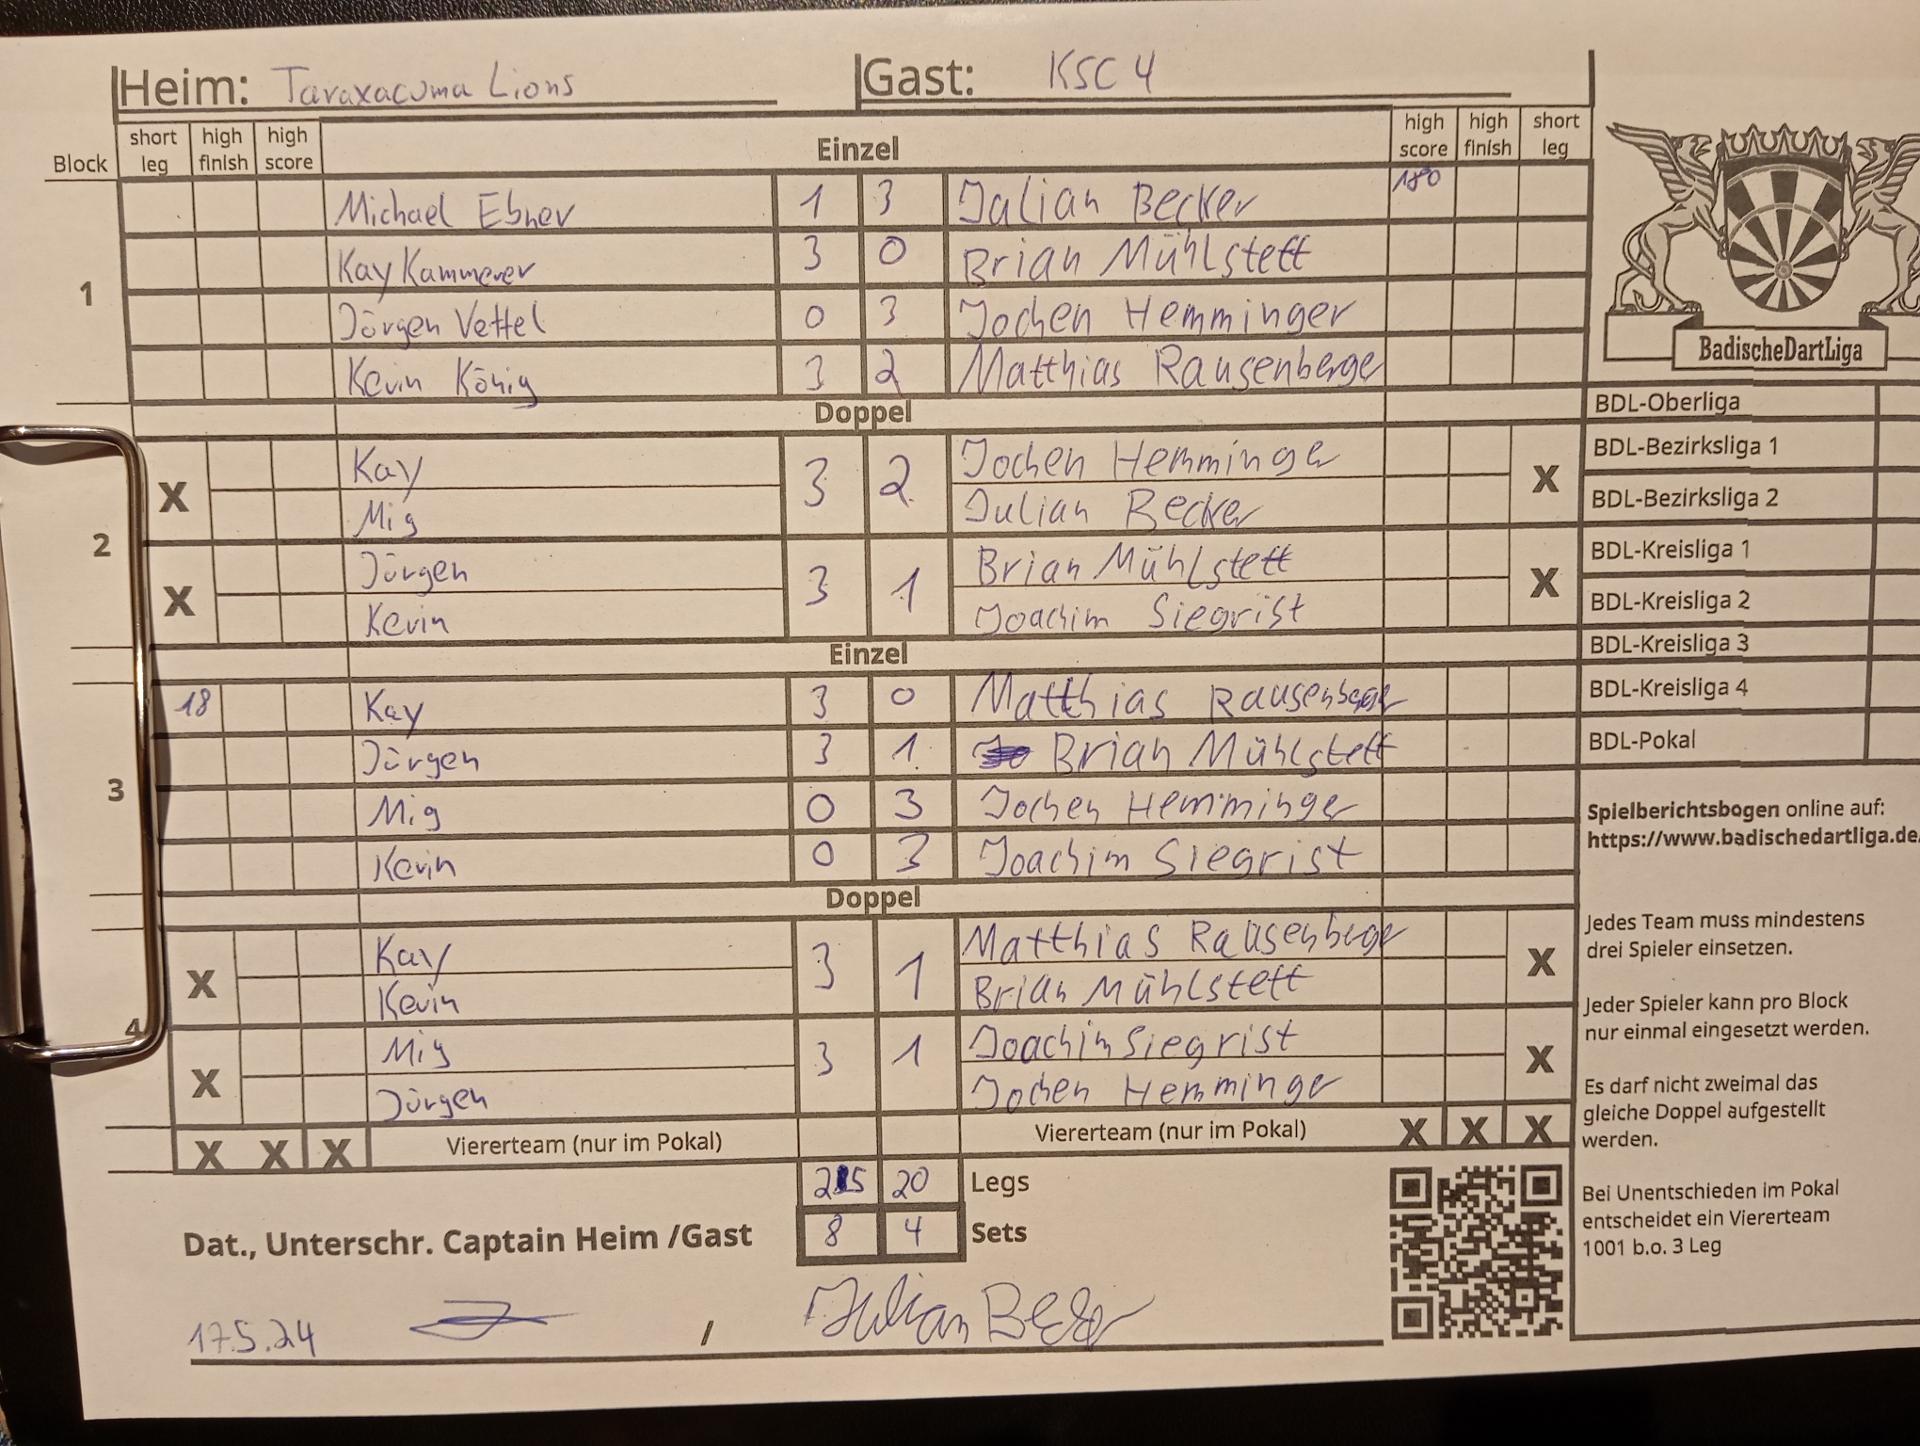 Heim: Taraxacuma Lions Gast: KSC 4
Block short leg high finish high score Einzel high score high finish short leg
1
Michael Ebner 1 3 Julian Becker 180
Kay Kammerer 3 0 Brian Mühlstett
Jürgen Vettel 0 3 Jochen Hemminger
Kevin König 3 2 Matthias Rausenberger
Doppel
2
X Kay 3 2 Jochen Hemminger X
Mig Julian Becker
X Jürgen 3 1 Brian Mühlstett X
Kevin Joachim Siegrist
Einzel
3
18 Kay 3 0 Matthias Rausenberger
Jürgen 3 1 Brian Mühlstett
Mig 0 3 Jochen Hemminger
Kevin 0 3 Joachim Siegrist
Doppel
4
X Kay 3 1 Matthias Rausenberger X
Kevin Brian Mühlstett
X Mig 3 1 Joachim Siegrist X
Jürgen Jochen Hemminger
X X X Viererteam (nur im Pokal) Viererteam (nur im Pokal) X X X
25 20 Legs
8 4 Sets
Dat., Unterschr. Captain Heim /Gast
17.5.24 / Julian Becker
BadischeDartLiga
BDL-Oberliga
BDL-Bezirksliga 1
BDL-Bezirksliga 2
BDL-Kreisliga 1
BDL-Kreisliga 2
BDL-Kreisliga 3
BDL-Kreisliga 4
BDL-Pokal
Spielberichtsbogen online auf:
https://www.badischedartliga.de/
Jedes Team muss mindestens
drei Spieler einsetzen.
Jeder Spieler kann pro Block
nur einmal eingesetzt werden.
Es darf nicht zweimal das
gleiche Doppel aufgestellt
werden.
Bei Unentschieden im Pokal
entscheidet ein Viererteam
1001 b.o. 3 Leg